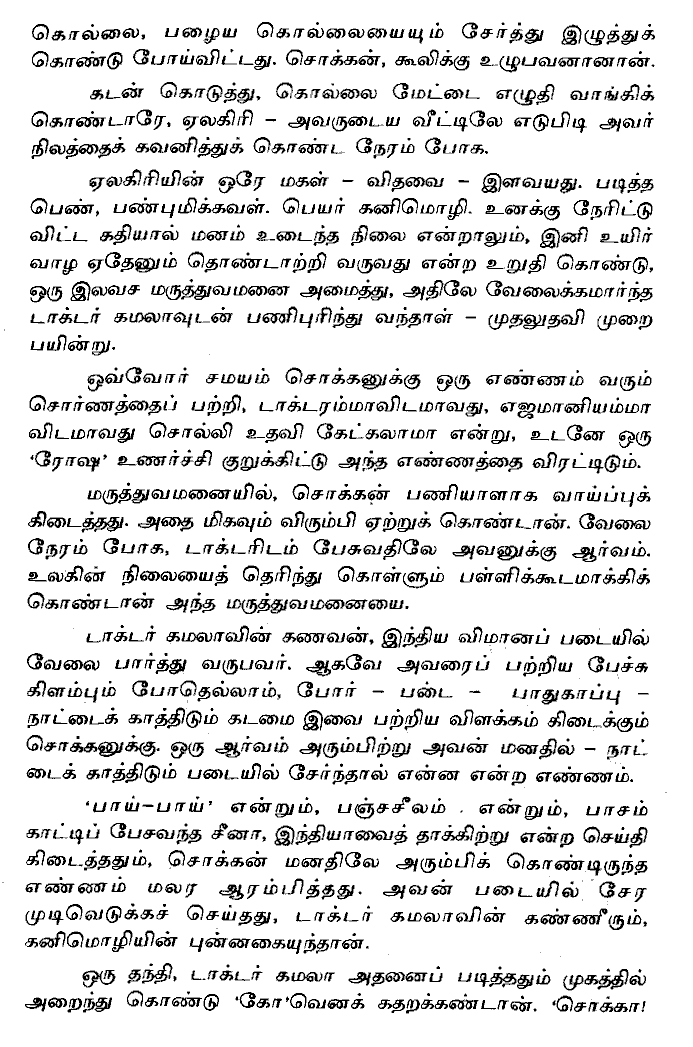 கொல்லை, பழைய கொல்லையையும் சேர்த்து இழுத்துக்
கொண்டு போய்விட்டது. சொக்கன், கூலிக்கு உழுபவனானான்.
கடன் கொடுத்து, கொல்லை மேட்டை எழுதி வாங்கிக்
கொண்டாரே, ஏலகிரி – அவருடைய வீட்டிலே எடுபிடி அவர்
நிலத்தைக் கவனித்துக் கொண்ட நேரம் போக.
ஏலகிரியின் ஒரே மகள் – விதவை – இளவயது. படித்த
பெண், பண்புமிக்கவள். பெயர் கனிமொழி. உனக்கு நேரிட்டு
விட்ட கதியால் மனம் உடைந்த நிலை என்றாலும், இனி உயிர்
வாழ ஏதேனும் தொண்டாற்றி வருவது என்ற உறுதி கொண்டு,
ஒரு இலவச மருத்துவமனை அமைத்து, அதிலே வேலைக்கமார்ந்த
டாக்டர் கமலாவுடன் பணிபுரிந்து வந்தாள் – முதலுதவி முறை
பயின்று.
ஒவ்வோர் சமயம் சொக்கனுக்கு ஒரு எண்ணம் வரும்
சொர்ணத்தைப் பற்றி, டாக்டரம்மாவிடமாவது, எஜமானியம்மா
விடமாவது சொல்லி உதவி கேட்கலாமா என்று, உடனே ஒரு
‘ரோஷ’ உணர்ச்சி குறுக்கிட்டு அந்த எண்ணத்தை விரட்டிடும்.
மருத்துவமனையில், சொக்கன் பணியாளாக வாய்ப்புக்
கிடைத்தது. அதை மிகவும் விரும்பி ஏற்றுக் கொண்டான். வேலை
நேரம் போக, டாக்டரிடம் பேசுவதிலே அவனுக்கு ஆர்வம்.
உலகின் நிலையைத் தெரிந்து கொள்ளும் பள்ளிக்கூடமாக்கிக்
கொண்டான் அந்த மருத்துவமனையை.
டாக்டர் கமலாவின் கணவன், இந்திய விமானப் படையில்
வேலை பார்த்து வருபவர். ஆகவே அவரைப் பற்றிய பேச்சு
கிளம்பும் போதெல்லாம், போர் – படை – பாதுகாப்பு –
நாட்டைக் காத்திடும் கடமை இவை பற்றிய விளக்கம் கிடைக்கும்
சொக்கனுக்கு. ஒரு ஆர்வம் அரும்பிற்று அவன் மனதில் – நாட்
டைக் காத்திடும் படையில் சேர்ந்தால் என்ன என்ற எண்ணம்.
‘பாய்–பாய்’ என்றும், பஞ்சசீலம் என்றும், பாசம்
காட்டிப் பேசவந்த சீனா, இந்தியாவைத் தாக்கிற்று என்ற செய்தி
கிடைத்ததும், சொக்கன் மனதிலே அரும்பிக் கொண்டிருந்த
எண்ணம் மலர ஆரம்பித்தது. அவன் படையில் சேர
முடிவெடுக்கச் செய்தது, டாக்டர் கமலாவின் கண்ணீரும்,
கனிமொழியின் புன்னகையுந்தான்.
ஒரு தந்தி, டாக்டர் கமலா அதனைப் படித்ததும் முகத்தில்
அறைந்து கொண்டு ‘கோ’வெனக் கதறக்கண்டான். ‘சொக்கா!